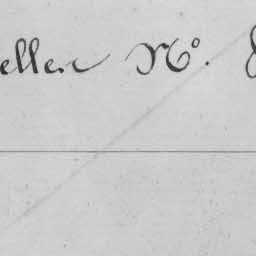 eller No.